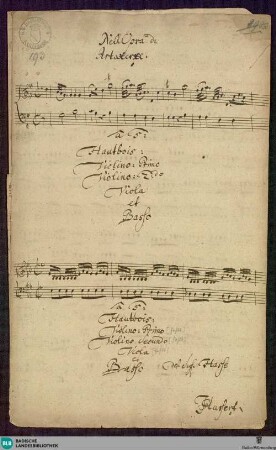 Nell Opra di
Artaxerxe.
193
à 5:
Hautbois:
Violino: Primo
Violino: 2do
Viola
et
Basso
à 5:
Hautbois:
Violino: Primo
Violino Secundo
Viola
et
Basso
Del Sigr Hasse
BLB BADISCHE
LANDESBIBLIOTHEK
Baden-Württemberg